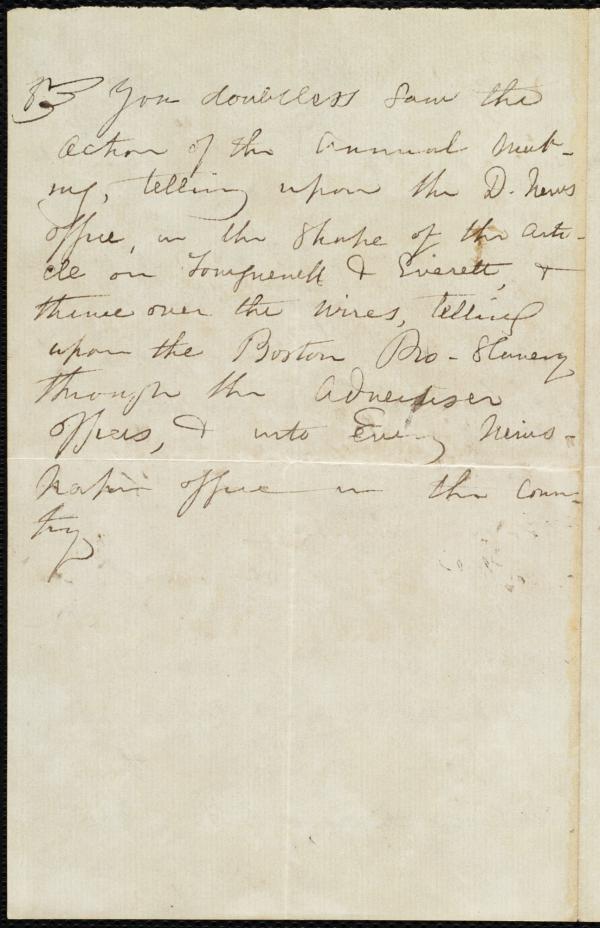 You doubtless saw the
action of the Annual Meet-
ing, telling upon the D. News
office, in the shape of the arti-
cle on & Everett, &
thence over the wires, telling
upon the Boston Pro-Slavery
through the Advertiser
offices, & into Every News-
paper office in the coun-
try.